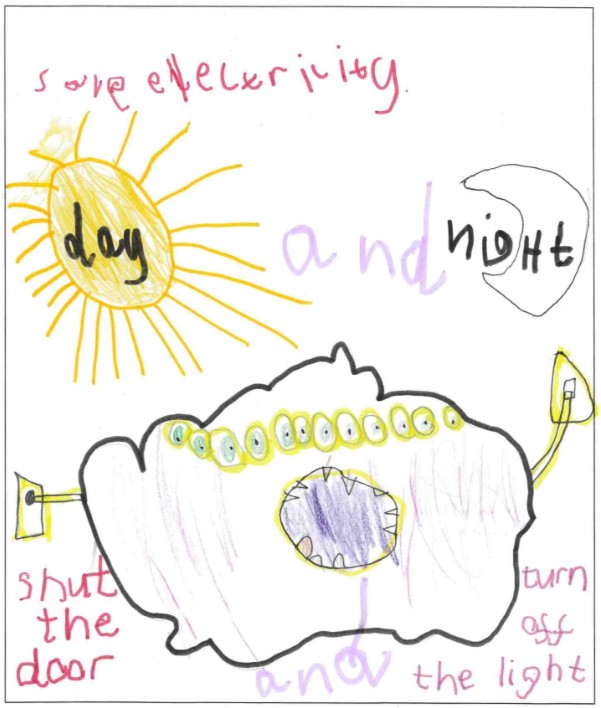 save electricity.
day and nigHt
shut
the
door
and
turn
off
the light